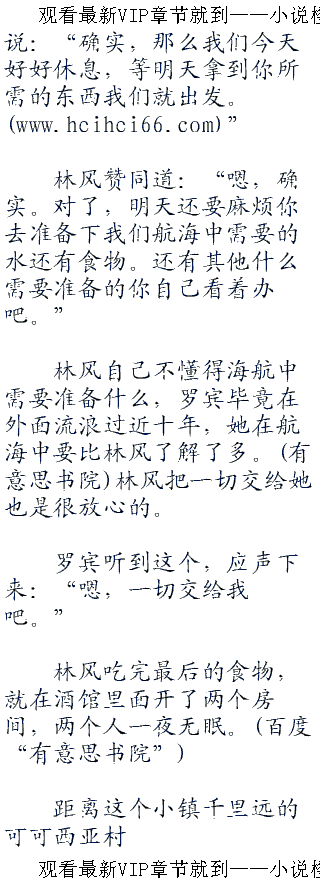 观看最新VIP章节就到——小说检
说：“确实，那么我们今天
好好休息，等明天拿到你所
需的东西我们就出发。
(www.hcihci66.com)”
林风赞同道：“嗯，确
实。对了，明天还要麻烦你
去准备下我们航海中需要的
水还有食物。还有其他什么
需要准备的你自己看着办
吧。”
林风自己不懂得海航中
需要准备什么，罗宾毕竟在
外面流浪过近十年，她在航
海中要比林风了解了多。(有
意思书院)林风把一切交给她
也是很放心的。
罗宾听到这个，应声下
来：“嗯，一切交给我
吧。”
林风吃完最后的食物，
就在酒馆里面开了两个房
间，两个人一夜无眠。(百度
“有意思书院”)
距离这个小镇千里远的
可可西亚村
观看最新VIP章节就到——小说检